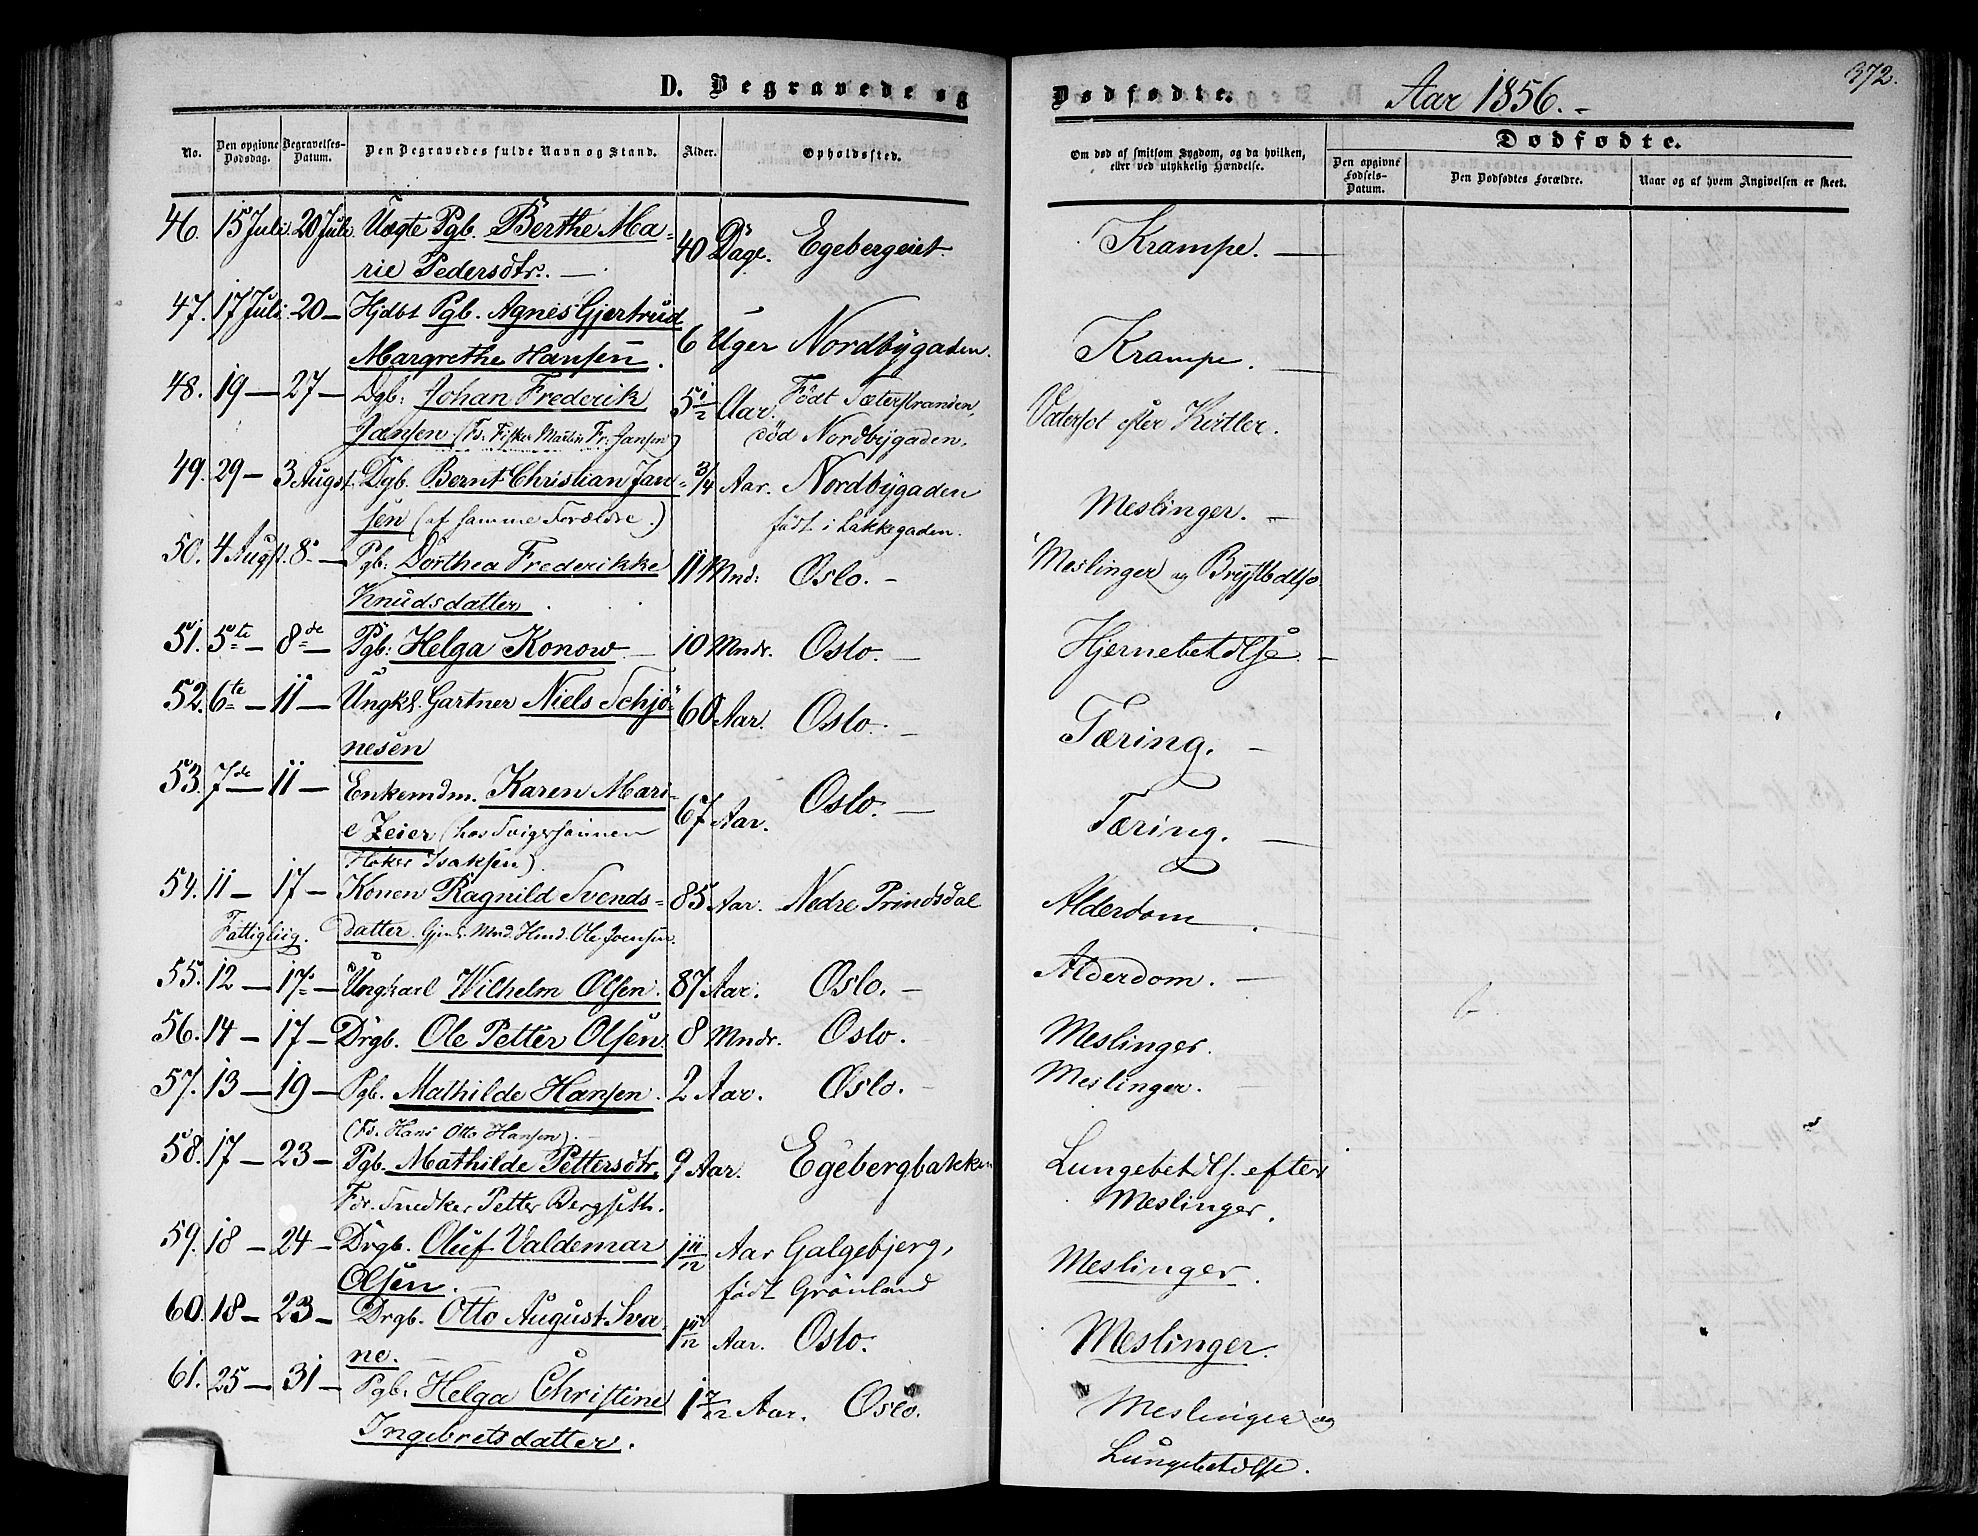 D. Begravede og Dødfødte. Aar 1856. 372.
No. Den opgivne Dødsdag. Begravelses-Datum. Den Begravedes fulde Navn og Stand. Alder. Opholdssted. Om død af smitsom Sygdom, og da hvilken, eller ved ulykkelig Hændelse. Dødfødte. Den opgivne Fødsels-Datum. Den Dødfødtes Forældre. Naar og af hvem Angivelsen er skeet.
46. 15 Juli. 20 Juli Uægte Pgb. Berthe Ma-
rie Pedersdtr. 40 Dage. Egebergeiet. Krampe.
47. 17 Juli. 20 Hjdbt Pgb. Agnes Gjertrud
Margrethe Hansen. 6 Uger Nordbygaden. Krampe.
48. 19 27 Dgb: Johan Frederik 5 1/2 Aar. Født Sæterstranden,
Jansen (F. Fisker Martin Fr. Jansen) død Nordbygaden. Vatersot efter Kirtler.
49. 29 3 Augst. Dgb. Bernt Christian Jan- 3/4 Aar. Nordbygaden
sen (af samme Forældre.) født i Lakkegaden. Meslinger.
50. 4 Augst. 8 Pgb: Dorthea Frederikke 11 Mnd: Oslo. Meslinger og Brystbdlse.
Knudsdatter.
51. 5te 8de Pgb: Helga Konow 10 Mndr. Oslo. Hjernebetdlse.
52. 6te 11 Ungkl. Gartner Niels Schjö-
nesen 60 Aar. Oslo. Tæring.
53. 7de 11 Enkemdm. Karen Mari-
e Zeier (hos Svigersønnen
Høker Isaksen). 67 Aar. Oslo. Tæring.
54. 11 17 Konen Ragnild Svends- 85 Aar. Nedre Prindsdal Alderdom.
Fattiglig. datter. Gjm. Mnd. Hmd. Ole Svensen.
55. 12 17. Ungkarl Wilhelm Olsen. 87 Aar. Oslo. Alderdom.
56. 14 17 Drgb. Ole Petter Olsen. 8 Mndr. Oslo. Meslinger.
57. 13 19 Pgb. Mathilde Hansen. 2 Aar. Oslo. Meslinger.
(F. Hans Otto Hansen).
58. 17 23 Pgb. Mathilde Pettersdtr. 9 Aar. Egebergbakken Lungebetdls. efter
For. Snedker Petter Bergseth. Meslinger.
59. 18 24 Drgb. Oluf Valdemar 1 Aar Galgebjerg,
Olsen. født Grönland Meslinger.
60. 18 23 Drgb. Otto August Sva-
ne. 1 Aar. Oslo. Meslinger.
61. 25 31 Pgb: Helga Christine 1 7/12 Aar. Oslo. Meslinger og
Ingebretsdatter. Lungebetdlse.